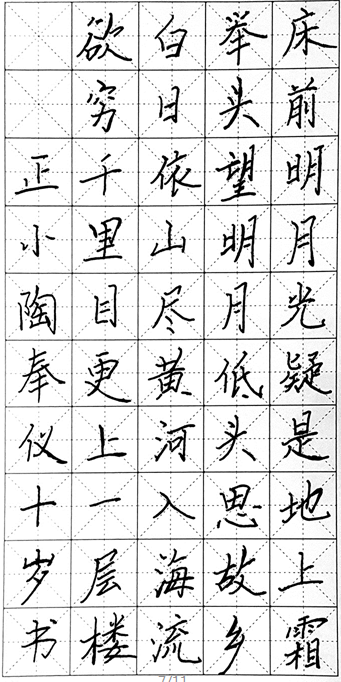 床前明月光疑是地上霜
举头望明月低头思故乡
白日依山尽黄河入海流
欲穷千里目更上一层楼
正小陶奉仪十岁书
7/11